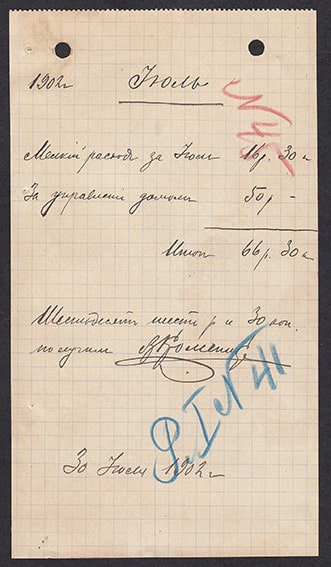 1902 г Июль
N 45
Мелкiй расход за Июль 16 р. 30 к
За управленiе домомъ 50 р -
Итого 66 р. 30 к
Шестьдесятъ шесть р и 30 коп.
получилъ
I N 41
30 Июля 1902 г